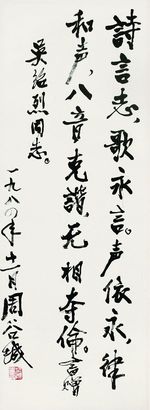 詩言志，歌永言。声依永，律
和声，八音克諧，无相夺倫。書贈
吴治烈同志。
一九八〇年十一月周谷城